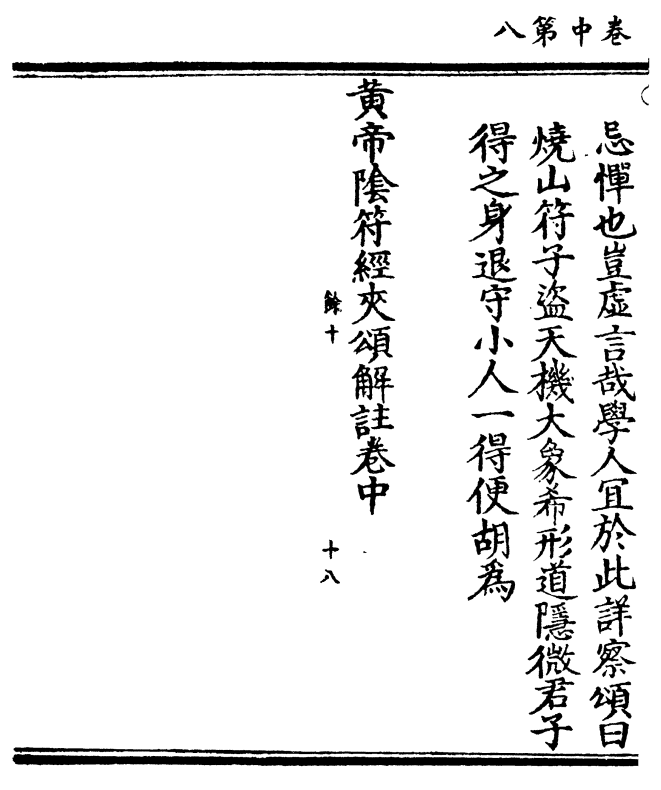 卷中第八
忌憚也豈虛言哉學人冝於此詳察頌曰
燒山符子盜天機大象希形道隱微君子
得之身退守小人一得便胡爲
黃帝陰符經夾頌解註卷中
餘十
十八